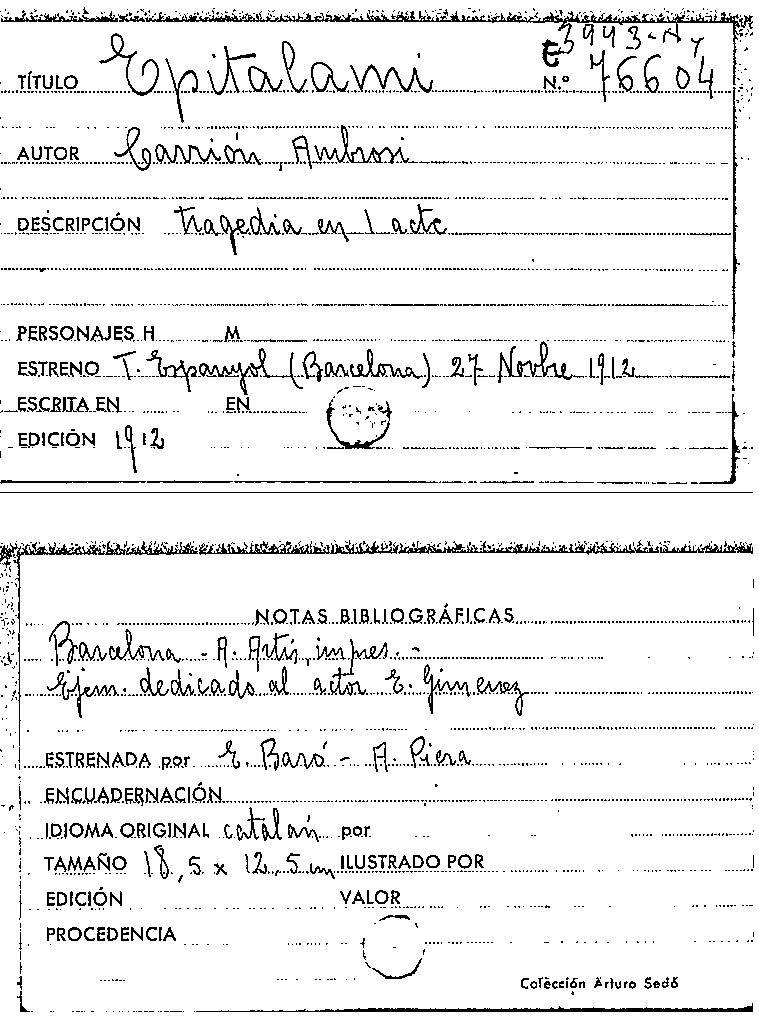 E 3943-Ny
TÍTULO Epitalami N.º 76604
AUTOR Carrión, Ambrosi
DESCRIPCIÓN tragedia en 1 acte
PERSONAJES H M
ESTRENO T. Espanyol (Barcelona) 27 Novbre 1912
ESCRITA EN EN
EDICIÓN 1912
NOTAS BIBLIOGRÁFICAS
Barcelona - A. Artís, impres. -
Ejem. dedicado al actor E. Gimenez
ESTRENADA por E. Baró - A. Piera
ENCUADERNACIÓN
IDIOMA ORIGINAL catalán por
TAMAÑO 18,5 x 12,5 cm ILUSTRADO POR
EDICIÓN VALOR
PROCEDENCIA
Colección Arturo Sedó